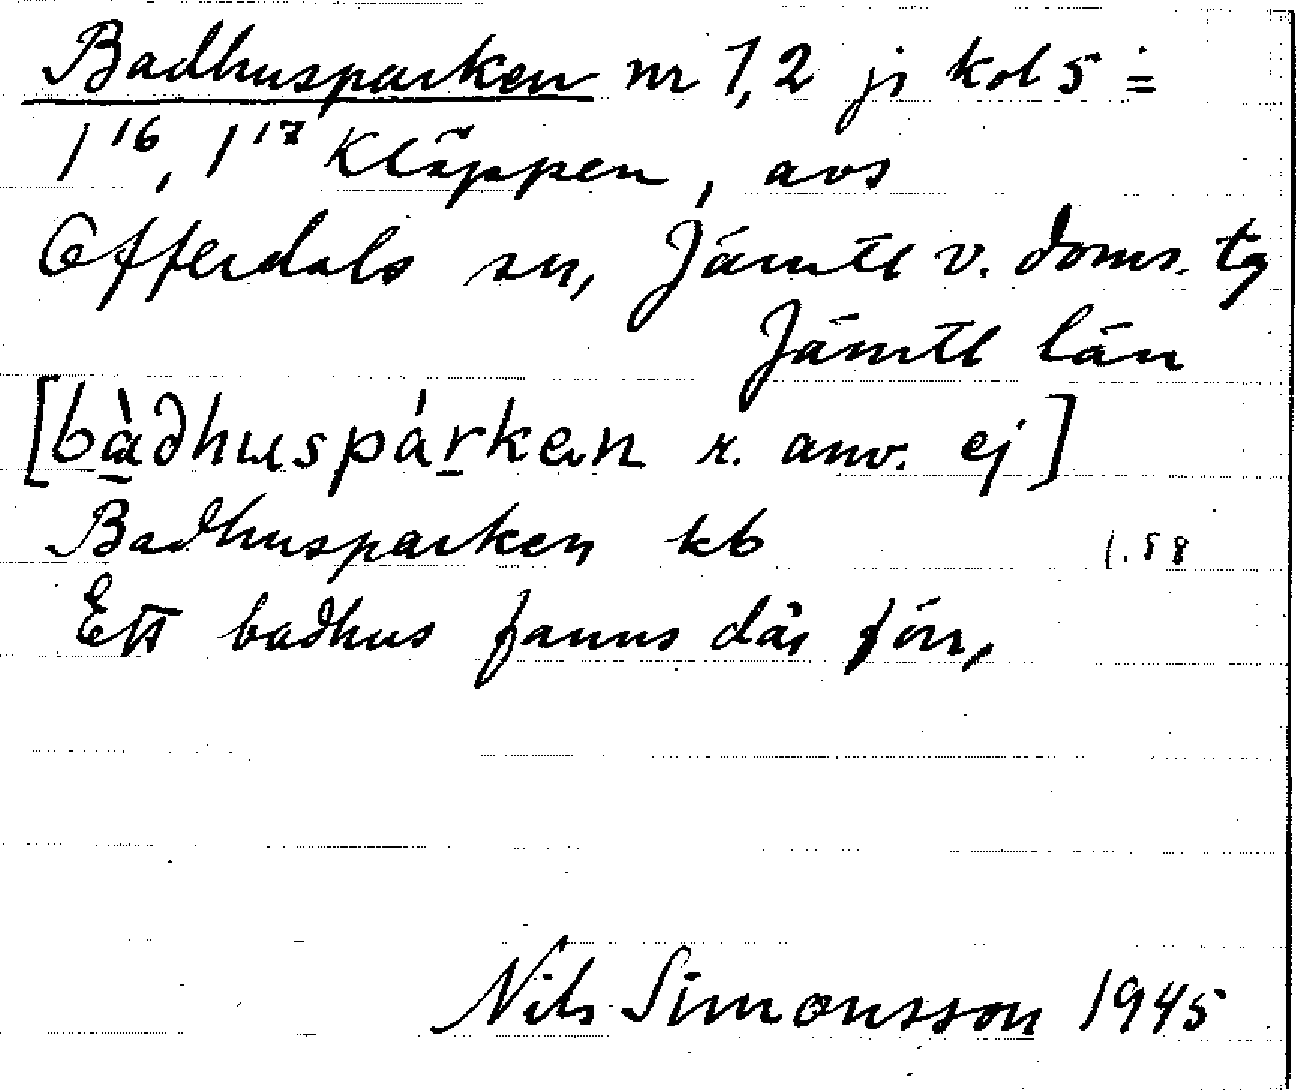 Badhusparken nr 1,2 ji kol 5 =
1¹⁶, 1¹⁷ Kläppen, avs
Offerdals sn, Jämtl v. doms. tg
Jämtl län
[bàdhuspárken r. anv. ej]
Badhusparken kb 1.58
Ett badhus fanns där förr,
Nils Simonsson 1945